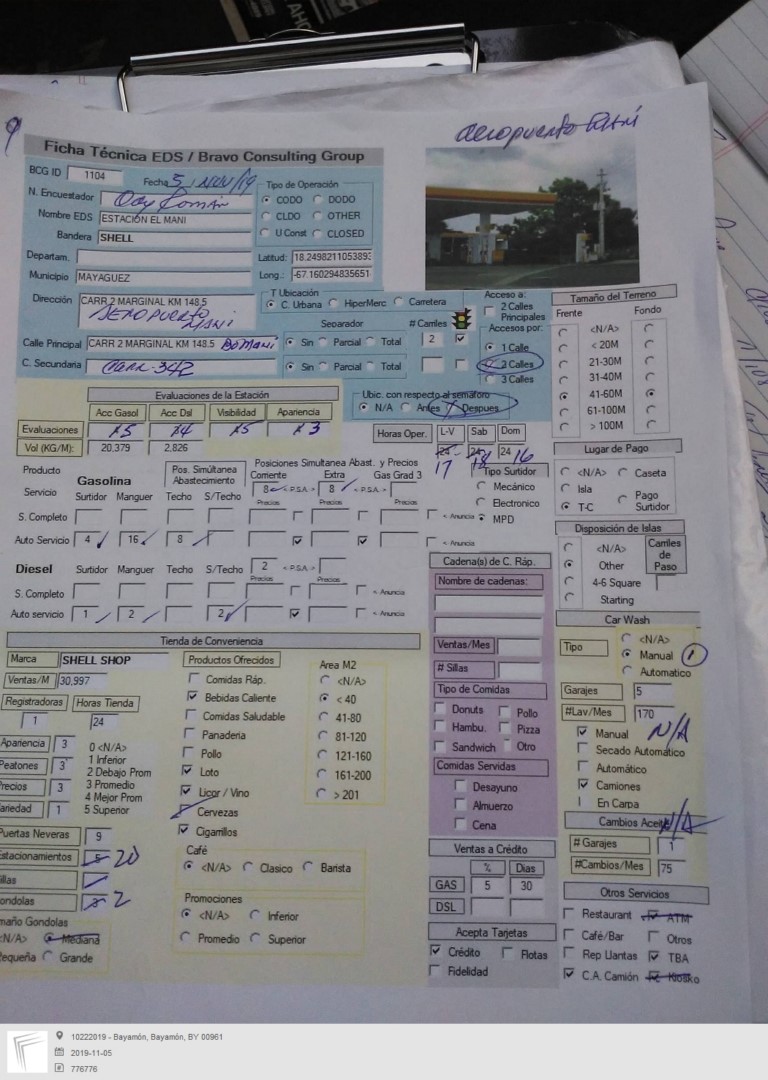 Aeropuerto Maní
Ficha Técnica EDS / Bravo Consulting Group
BCG ID 1104
Fecha 5 / NOV/19
N. Encuestador
Nombre EDS ESTACIÓN EL MANI
Bandera SHELL
Departam.
Municipio MAYAGUEZ
Dirección CARR 2 MARGINAL KM 148.5
AEROPUERTO
MANI
Calle Principal CARR 2 MARGINAL KM 148.5
C. Secundaria CARR-342
Tipo de Operación
CODO DODO
CLDO OTHER
U Const CLOSED
Latitud: 18.2498211053893
Long.: -67.160294835651
T Ubicación
C. Urbana HiperMerc Carretera
Separador # Carriles
Sin Parcial Total 2
Sin Parcial Total
Acceso a:
2 Calles
Principales
Accesos por:
1 Calle
2 Calles
3 Calles
Ubic. con respecto al semaforo
N/A Antes Despues
Tamaño del Terreno
Frente Fondo
<N/A>
< 20M
21-30M
31-40M
41-60M
61-100M
> 100M
Evaluaciones de la Estación
Acc Gasol Acc Dsl Visibilidad Apariencia
Evaluaciones 5 4 5 3
Vol (KG/M): 20,379 2,826
Horas Oper. L-V Sab Dom
24 24 24 16
17 18
Lugar de Pago
<N/A> Caseta
Isla Pago
T-C Surtidor
Producto Gasolina
Pos. Simúltanea
Abastecimiento
Posiciones Simultanea Abast. y Precios
Corriente Extra Gas Grad 3
Servicio Surtidor Manguer Techo S/Techo 8 < P.S.A.> 8 < P.S.A.>
Precios Precios Precios
S. Completo < Anuncia
Auto Servicio 4 16 8 < Anuncia
Tipo Surtidor
Mecánico
Electronico
MPD
Diesel Surtidor Manguer Techo S/Techo 2 < P.S.A.>
Precios Precios
S. Completo < Anuncia
Auto servicio 1 2 2 < Anuncia
Disposición de Islas
<N/A>
Other
4-6 Square
Starting
Carriles
de
Paso
Cadena(s) de C. Ráp.
Nombre de cadenas:
Ventas/Mes
# Sillas
Tipo de Comidas
Donuts Pollo
Hambu. Pizza
Sandwich Otro
Comidas Servidas
Desayuno
Almuerzo
Cena
Car Wash
Tipo
<N/A>
Manual 1
Automatico
Garajes 5
#Lav/Mes 170
N/A
Manual
Secado Automático
Automático
Camiones
En Carpa
Cambios Aceite N/A
# Garajes 1
#Cambios/Mes 75
Tienda de Conveniencia
Marca SHELL SHOP
Ventas/M 30,997
Registradoras Horas Tienda
1 24
Apariencia 3
Peatones 3
Precios 3
ariedad 1
0 <N/A>
1 Inferior
2 Debajo Prom
3 Promedio
4 Mejor Prom
5 Superior
Puertas Neveras 9
Estacionamientos 20
illas
ondolas 2
maño Gondolas
<N/A> Mediana
equeña Grande
Productos Ofrecidos
Comidas Ráp.
Bebidas Caliente
Comidas Saludable
Panaderia
Pollo
Loto
Licor / Vino
Cervezas
Cigarrillos
Area M2
<N/A>
< 40
41-80
81-120
121-160
161-200
> 201
Café
<N/A> Clasico Barista
Promociones
<N/A> Inferior
Promedio Superior
Ventas a Crédito
% Dias
GAS 5 30
DSL
Acepta Tarjetas
Crédito Flotas
Fidelidad
Otros Servicios
Restaurant ATM
Café/Bar Otros
Rep Llantas TBA
C.A. Camión Kiosko
10222019 - Bayamón, Bayamón, BY 00961
2019-11-05
776776